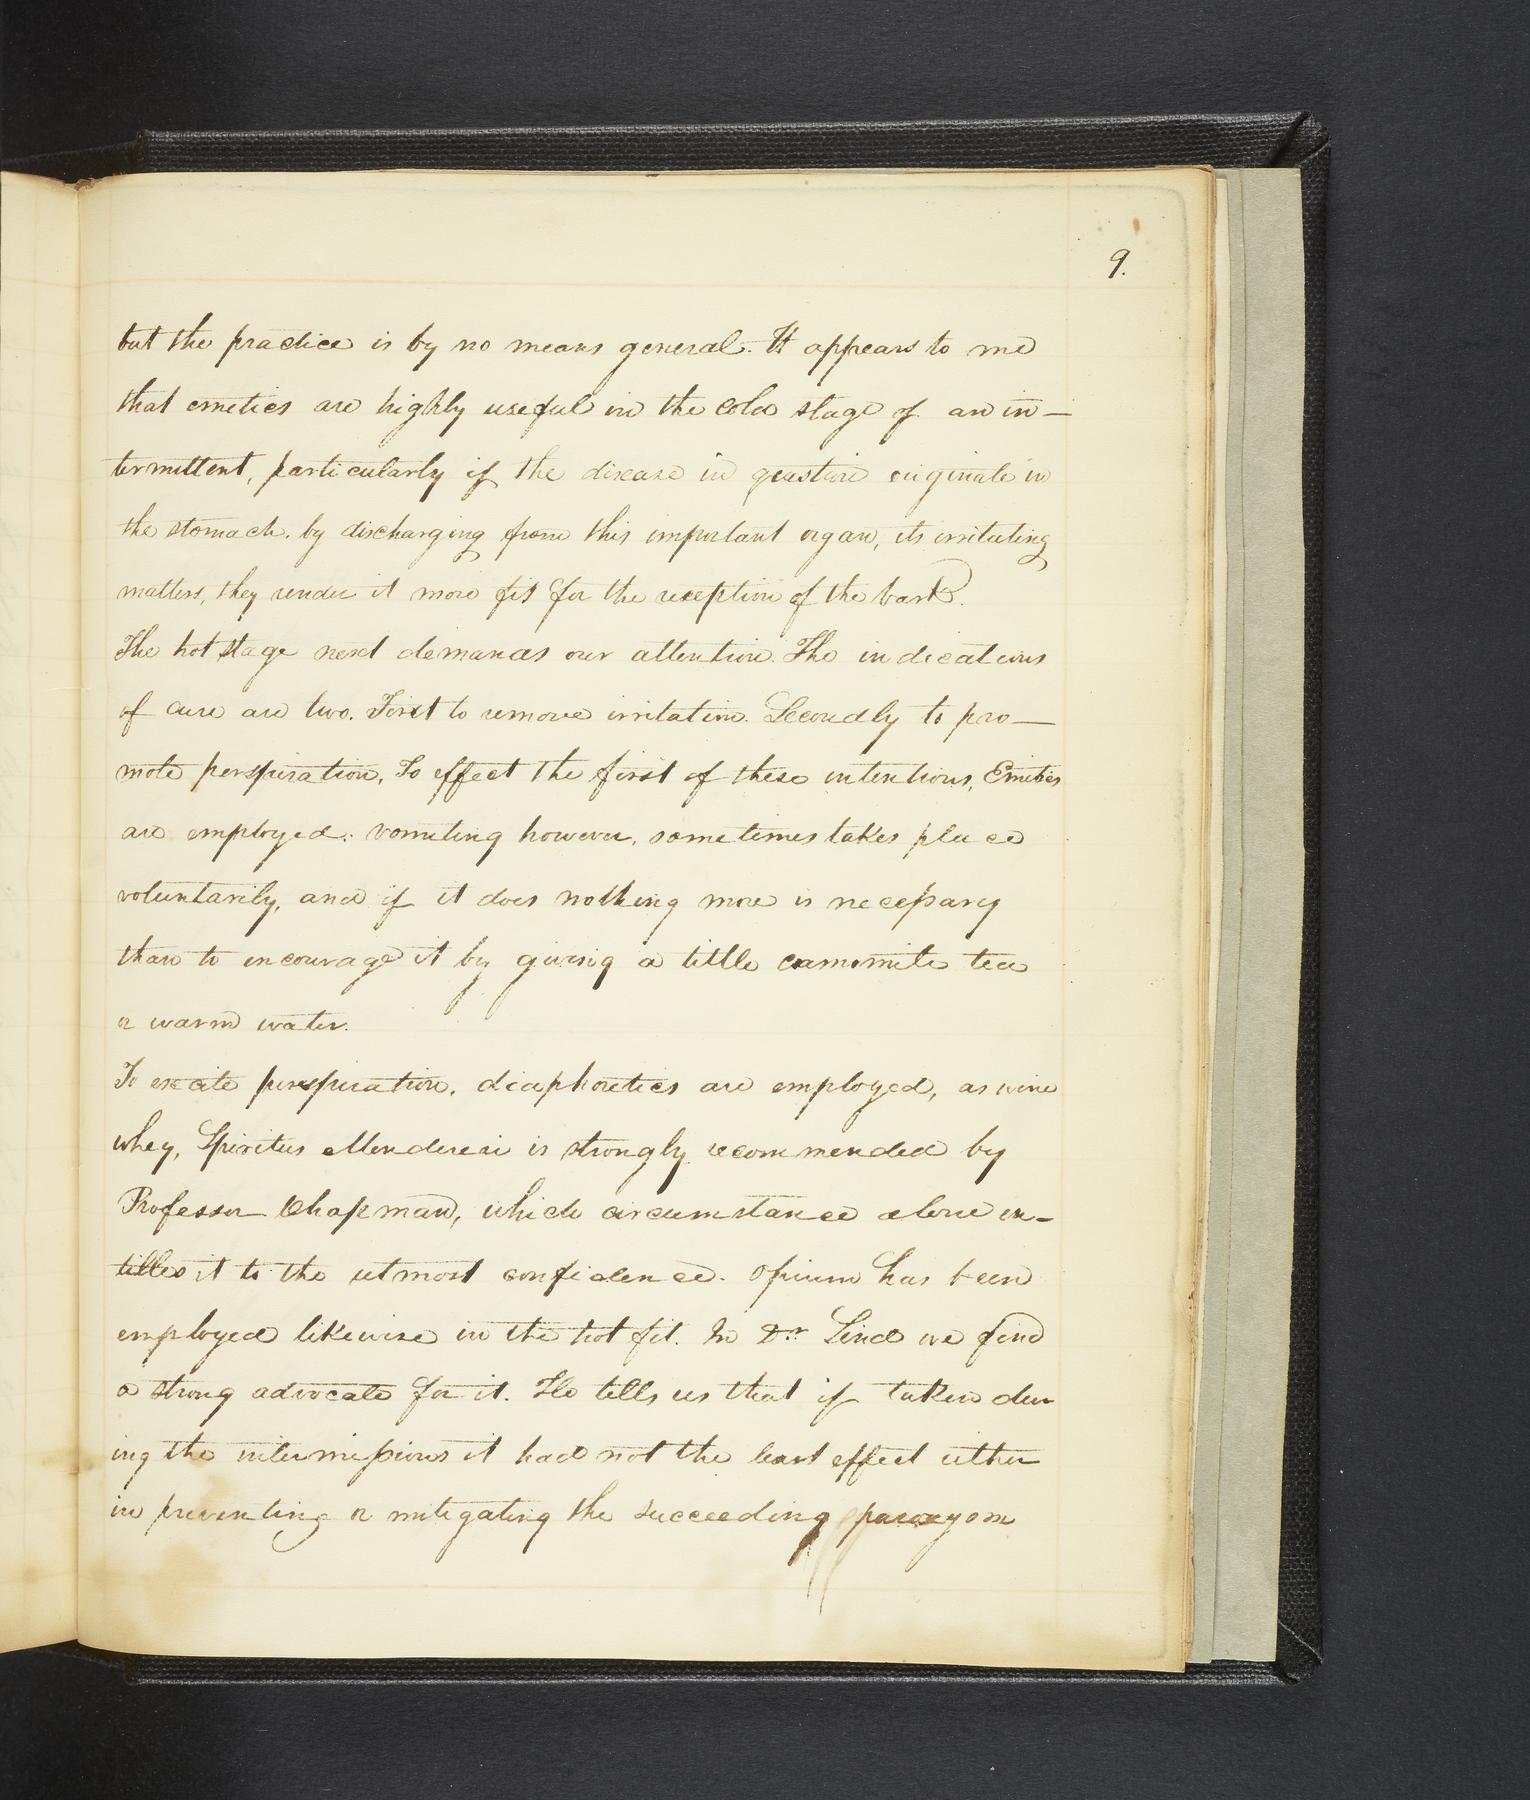 9.
but the practice is by no means general. It appears to me
that emetics are highly useful in the cold stage of an in-
termittent, particularly if the disease in question originate in
the stomach. by discharging from this important organ, its irritating
matters, they render it more fit for the reception of the bark.
The hot stage next demands our attention. The indications
of cure are two. First to remove irritation. Secondly to pro-
mote perspiration, To effect the first of these intentions, Emetics
are employed: vomiting however, sometimes takes place
voluntarily, and if it does nothing more is necessary
than to encourage it by giving a little camomile tea
or warm water.
To excite perspiration, diaphoretics are employed, as wine
whey, Spiritus Mendereri is strongly recommended by
Professor Chapman, which circumstance alone en-
titles it to the utmost confidence. Opium has been
employed likewise in the hot fit. In Dr Lind we find
a strong advocate for it. He tells us that if taken dur
ing the intermissions it had not the least effect either
in preventing or mitigating the succeeding paroxysm